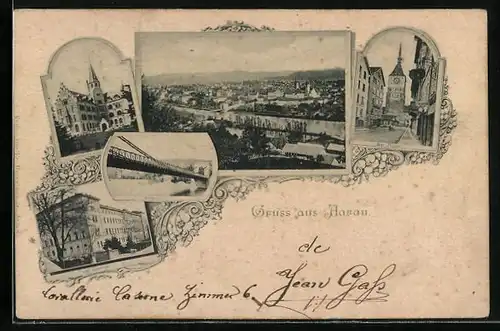 Gruss aus Aarau.
de
Jean Gass
Cavallerie Caserne Zimmer 6